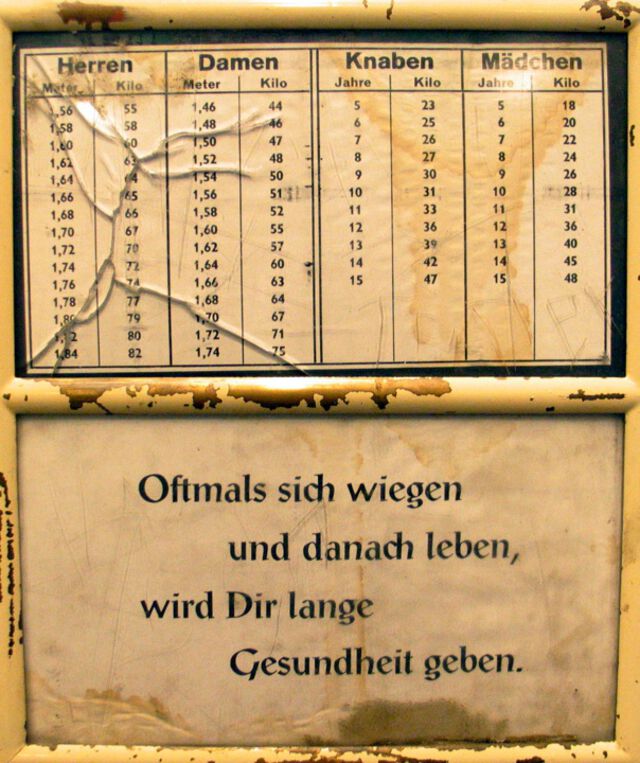 Herren Damen Knaben Mädchen
Meter Kilo Meter Kilo Jahre Kilo Jahre Kilo
1,56 55 1,46 44 5 23 5 18
1,58 58 1,48 46 6 25 6 20
1,60 60 1,50 47 7 26 7 22
1,62 63 1,52 48 8 27 8 24
1,64 64 1,54 50 9 30 9 26
1,66 65 1,56 51 10 31 10 28
1,68 66 1,58 52 11 33 11 31
1,70 67 1,60 55 12 36 12 36
1,72 70 1,62 57 13 39 13 40
1,74 72 1,64 60 14 42 14 45
1,76 74 1,66 63 15 47 15 48
1,78 77 1,68 64
1,80 79 1,70 67
1,82 80 1,72 71
1,84 82 1,74 75
Oftmals sich wiegen
und danach leben,
wird Dir lange
Gesundheit geben.